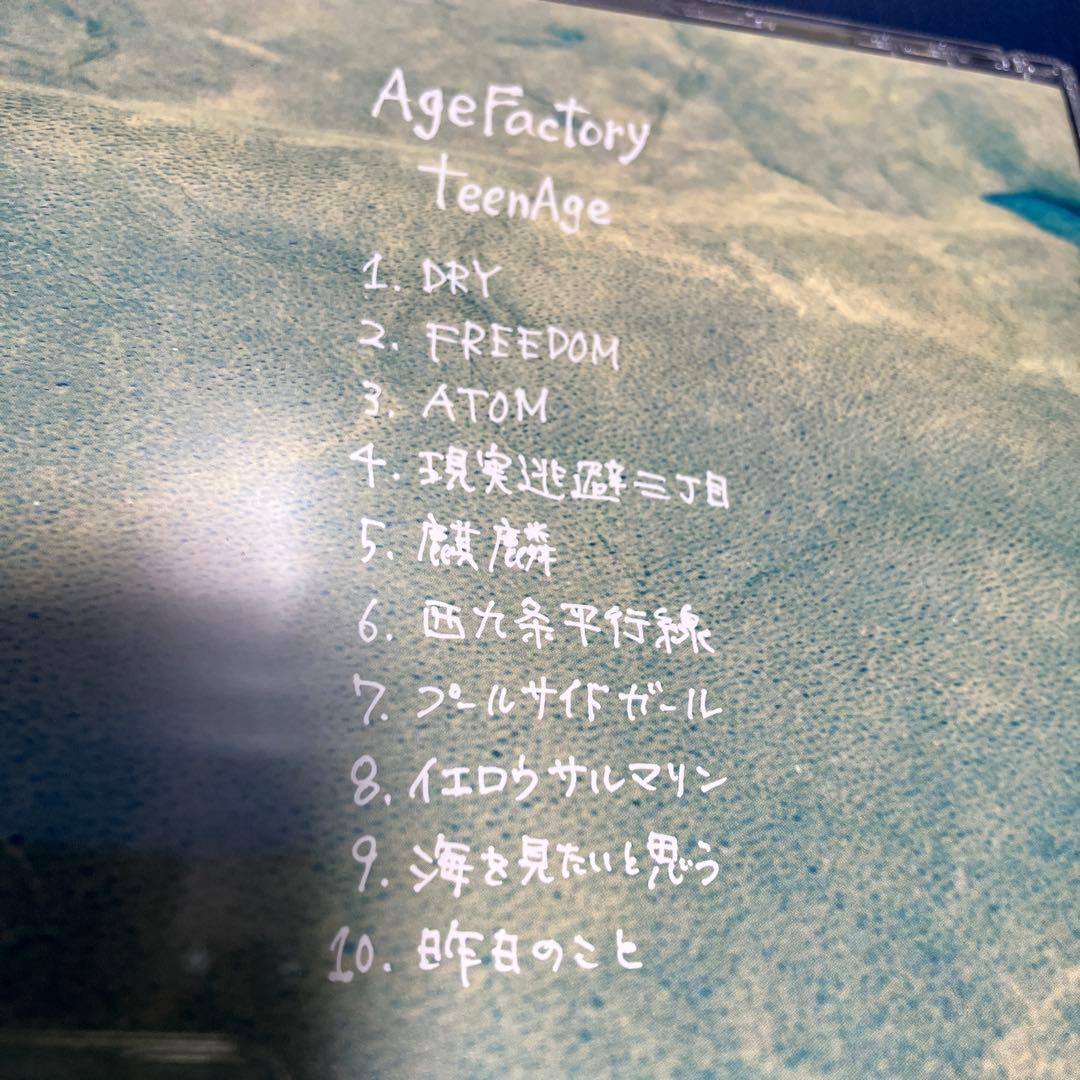 AgeFactory
TeenAge
1. DRY
2. FREEDOM
3. ATOM
4. 現実逃避三丁目
5. 麒麟
6. 西九条平行線
7. プールサイドガール
8. イエロウサルマリン
9. 海を見たいと思う
10. 昨日のこと